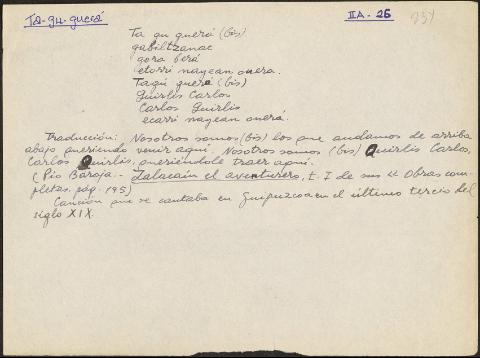 Ta-gu-guerá
IIA-26
Ta gu guerá (bis)
gabiltzanac
gora berá
etorri nayean onera.
Tagu guerá (bis)
Quirlis Carlos
Carlos Quirlis
ecarri nayean onerá.
Traducción: Nosotros somos (bis) los que andamos de arriba
abajo queriendo venir aquí. Nosotros somos (bis) Quirlis Carlos,
Carlos Quirlis, queriéndole traer aquí.
(Pío Baroja.- Zalacaín el aventurero, t. I de sus "Obras com-
pletas. pág. 195)
Canción que se cantaba en Guipúzcoa en el último tercio del
siglo XIX.